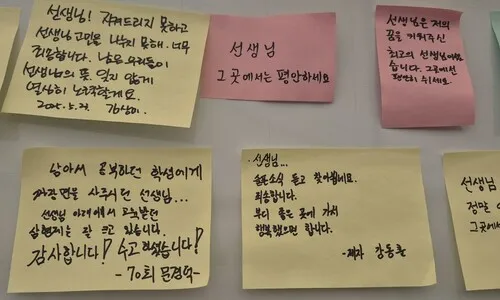 선생님! 지켜드리지 못하고
선생님 고민을 나누지 못해 너무
죄송합니다. 남은 저희들이
선생님의 뜻 잊지 않게
열심히 노력할게요.
2025.5.23.
선생님
그곳에서는 평안하세요
선생님은 저의
꿈을 키워주신
최고의 선생님이셨
습니다. 그곳에선
편안히 쉬세요.
남아서 공부하던 학생에게
짜장면을 사주시던 선생님...
선생님 아래에서
잘 크고 있습니다!
감사합니다! 수고하셨습니다!
-70회 문경덕-
선생님...
슬픈소식 듣고 찾아뵙네요.
죄송합니다.
부디 좋은 곳에 가서
행복했으면 합니다.
-제자 강동훈
선생님
정말
그곳에서